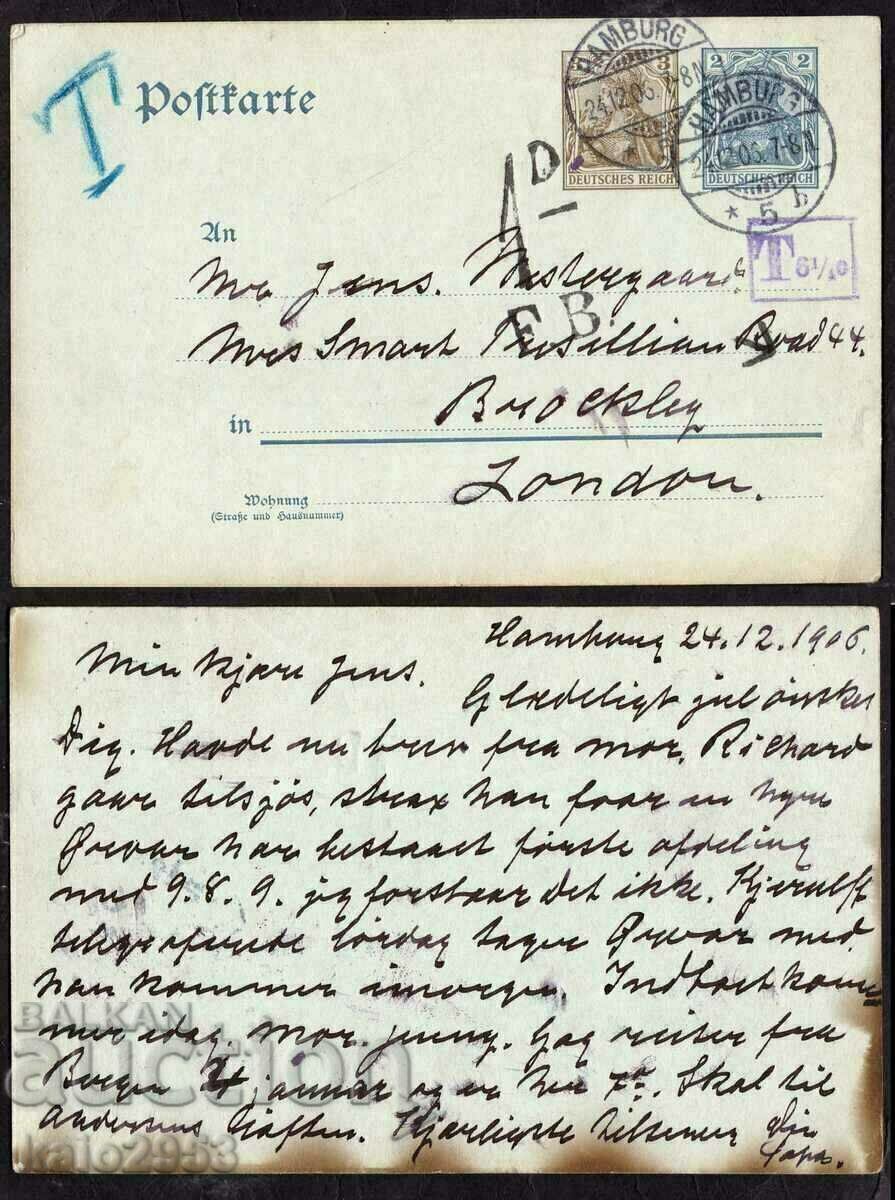 T
Postkarte
3
DEUTSCHES REICH
2
DEUTSCHES REICH
HAMBURG
24.12.06. 7-8N.
HAMBURG
24.12.06. 7-8N.
* 5 h
1D-
F.B.
T 6¼c
An
Mr Jens. Westergaard
Mrs Smart Road 44.
in Brockley
London.
Wohnung
(Straße und Hausnummer)
Hamburg 24.12.1906.
Min kjære Jens.
Glædeligt jul önsker
Dig. Havde nu brev fra mor. Richard
gaar tilsjös, strax han faar en hyre
Ørvar har bestaaet første afdeling
med 9.8.9. jeg forstaar det ikke. Kjerulff
telegraferede lördag tager Ørvar med.
han kommer imorgen. Indboet kom=
mer idag. mor. Jeg reiser fra
Bergen 4 januar og er her 7de. Skal til
Andersens iaften. Kjærligste hilsener din
Papa.
BALKAN
auction
kajo2953